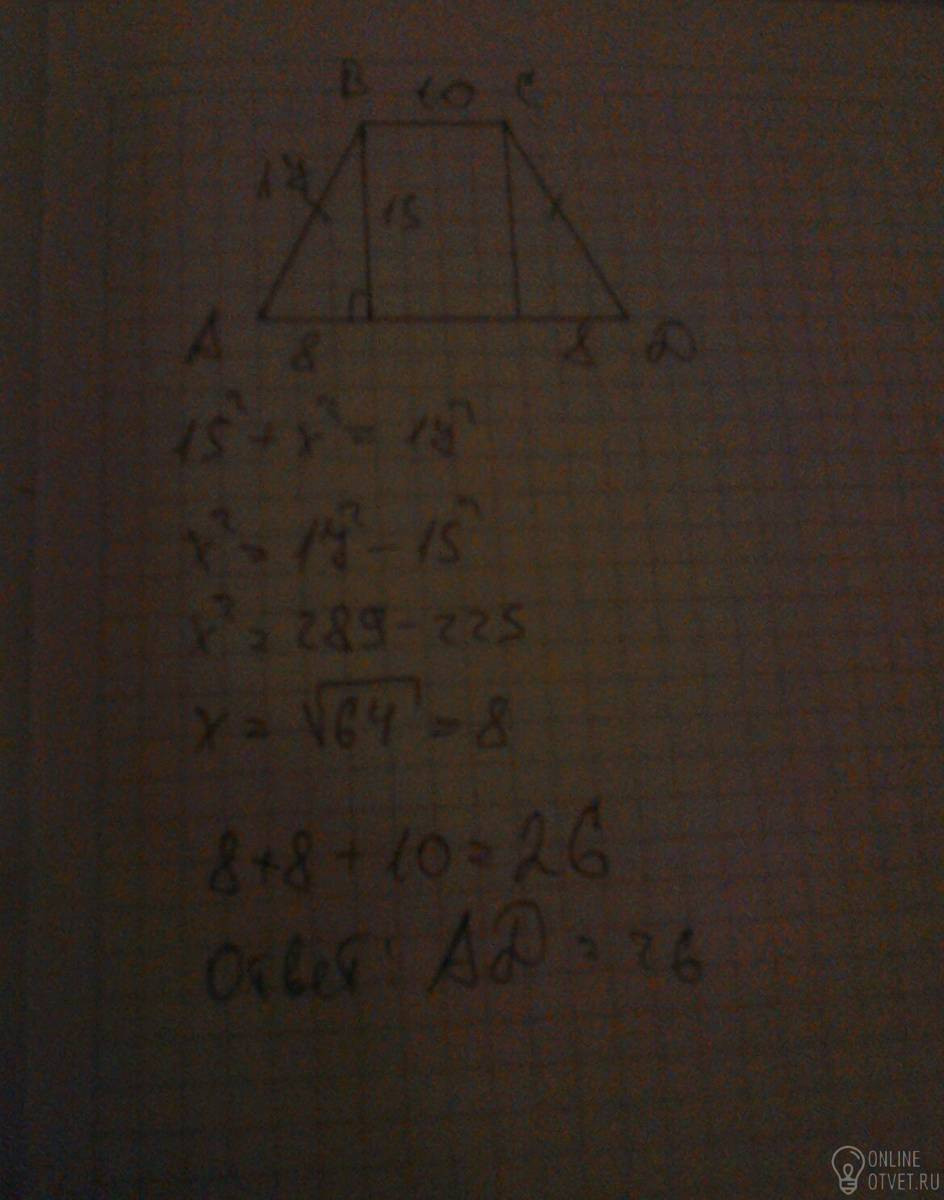 B 10 C
17
15
A 8 8 D
15² + x² = 17²
x² = 17² - 15²
x² = 289 - 225
x = √64 = 8
8 + 8 + 10 = 26
Ответ: AD = 26
ONLINE
OTVET.RU